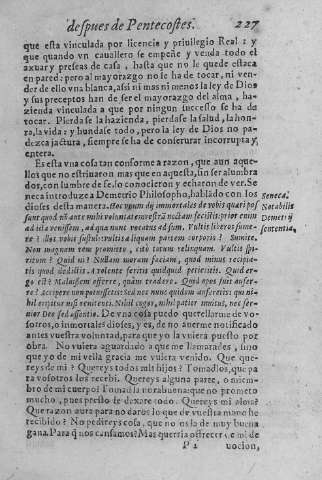 despues de Pentecostes. 227
que esta vinculada por licencia y priuilegio Real: y
que quando vn cauallero se empeñe y venda todo el
axuar y preseas de casa, hasta que no le quede estaca
en pared: pero al mayorazgo no se ha de tocar, ni ven-
der de ello vna blanca, assi ni mas ni menos la ley de Dios
y sus preceptos han de ser el mayorazgo del alma, ha-
zienda vinculada a que por ningun successo se ha de
tocar. Pierdase la hazienda, pierdase la salud, la hon-
ra, la vida: y hundase todo, pero la ley de Dios no pa-
dezca jactura, siempre se ha de conseruar incorrupta y
entera.
Es esta vna cosa tan conforme a razon, que aun aque-
llos que no estriuaron mas que en aquesta, sin ser alumbra
dos, con lumbre de fe, lo conocieron y echaron de ver. Se
neca introduze a Demetrio Philosopho, hablado con los
dioses desta manera. Hoc vnum dij immortales de vobis quæri pos
sum quod nõ ante mihi voluntatem vestrã notam fecistis: prior enim
ad ista venissem, ad qua nunc vocatus ad sum. Vultis liberos sume-
re? illos vobis sustuli: vultis aliquam partem corporis? Sumite.
Non magnam rem promitto, cito totum relinquam. Vultis spi-
ritum? Quid ni? Nullam moram faciam, quo minus recipia-
tis quod dedistis. A volente feretis quidquid petieritis. Quid er-
go est? Maluissem offerre, quàm tradere. Quid opus fuit aufer-
re? Accipere potuistis: Sed nec nunc quidem auferetis: quia ni-
hil eripitur nisi renitenti. Nihil cogor, nihil patior inuitus, nec ser-
uior Deo sed assentio. De vna cosa puedo querellarme de vo-
sotros, o inmortales dioses, y es, de no auerme notificado
antes vuestra voluntad, para que yo la vuiera puesto por
obra. No vuiera aguardado a que me llamarades, sino
que yo de mi vella gracia me vuiera venido. Que que-
reys de mi? Quereys todos mis hijos? Tomadlos, que pa
ra vosotros los recebi. Quereys alguna parte, o miem-
bro de mi cuerpo? Tomalda norabuena: que no prometo
mucho, pues presto le dexare todo. Quereys mi alma?
Que razon aura para no daros lo que de vuestra mano he
recibido? No pedireys cosa, que no os la de muy buena
gana. Para q̃ nos cansamos? Mas querria offrecer, e mi de
P 2 uocion,
Seneca.
Notabilis
Demetrij
sententia.